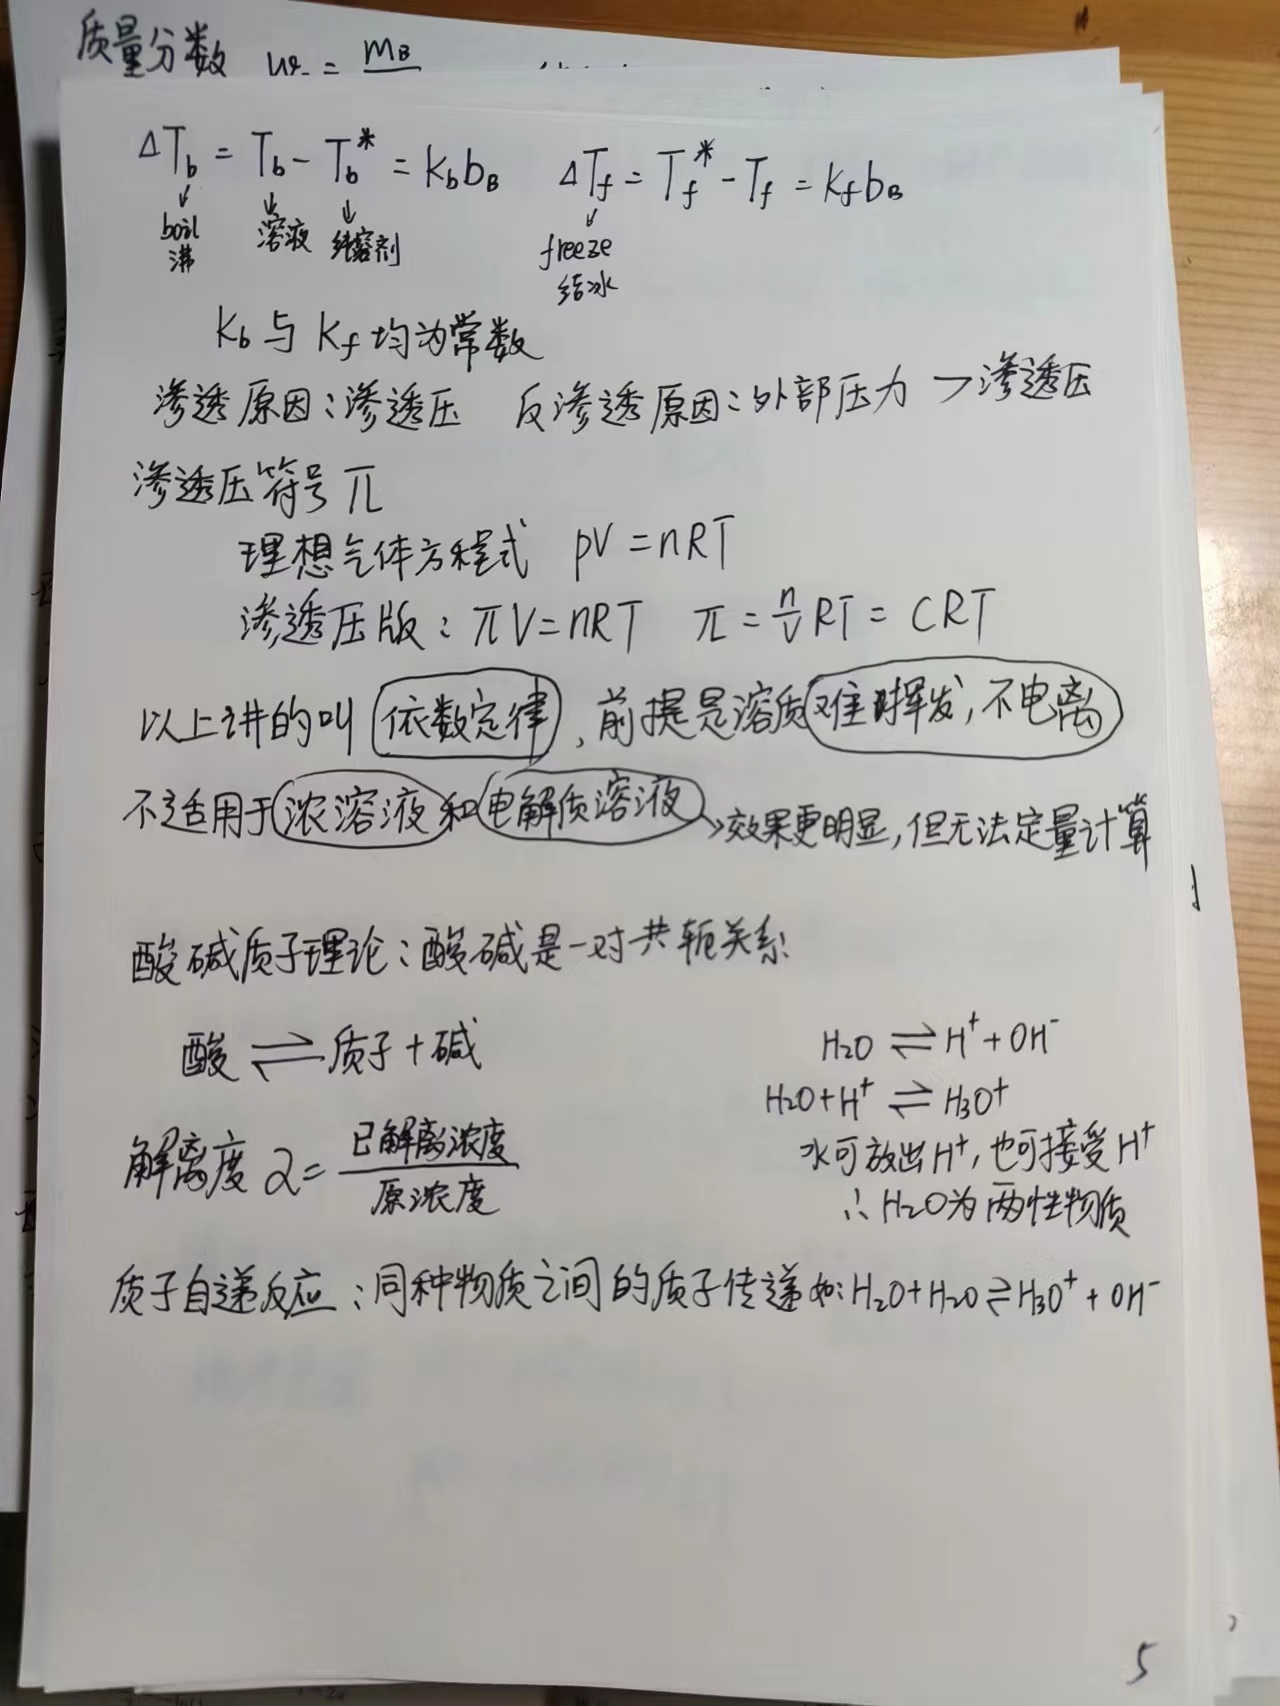 质量分数 w = mB
ΔTb = Tb - Tb* = KbbB ΔTf = Tf* - Tf = KfbB
↓ boil 沸 ↓ 溶液 ↓ 纯溶剂 ↓ freeze 结冰
Kb与Kf均为常数
渗透原因:渗透压 反渗透原因:外部压力 > 渗透压
渗透压符号 π
理想气体方程式 pV = nRT
渗透压版:πV = nRT π = n/V RT = CRT
以上讲的叫依数定律,前提是溶质难挥发,不电离
不适用于浓溶液和电解质溶液→效果更明显,但无法定量计算
酸碱质子理论:酸碱是一对共轭关系
酸 ⇌ 质子 + 碱
H2O ⇌ H+ + OH-
H2O + H+ ⇌ H3O+
水可放出H+,也可接受H+
∴ H2O为两性物质
解离度 α = 已解离浓度/原浓度
质子自递反应:同种物质之间的质子传递如:H2O + H2O ⇌ H3O+ + OH-
5